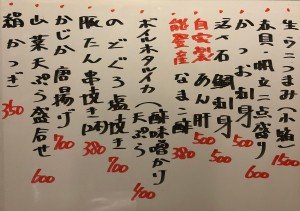 生うにつまみ(小鉢) 1500
赤貝・帆立二点盛り 600
かつお刺身 500
石鯛刺身 500
自家製 あん肝 500
能登産 なまこ酢 380
ボイルホタルイカ(酢味噌かけ 天ぷら) 400
のどぐろ塩焼き 700
豚たん串焼き 380
かじか唐揚げ 700
山菜天ぷら盛合せ 600
絹かつぎ 350